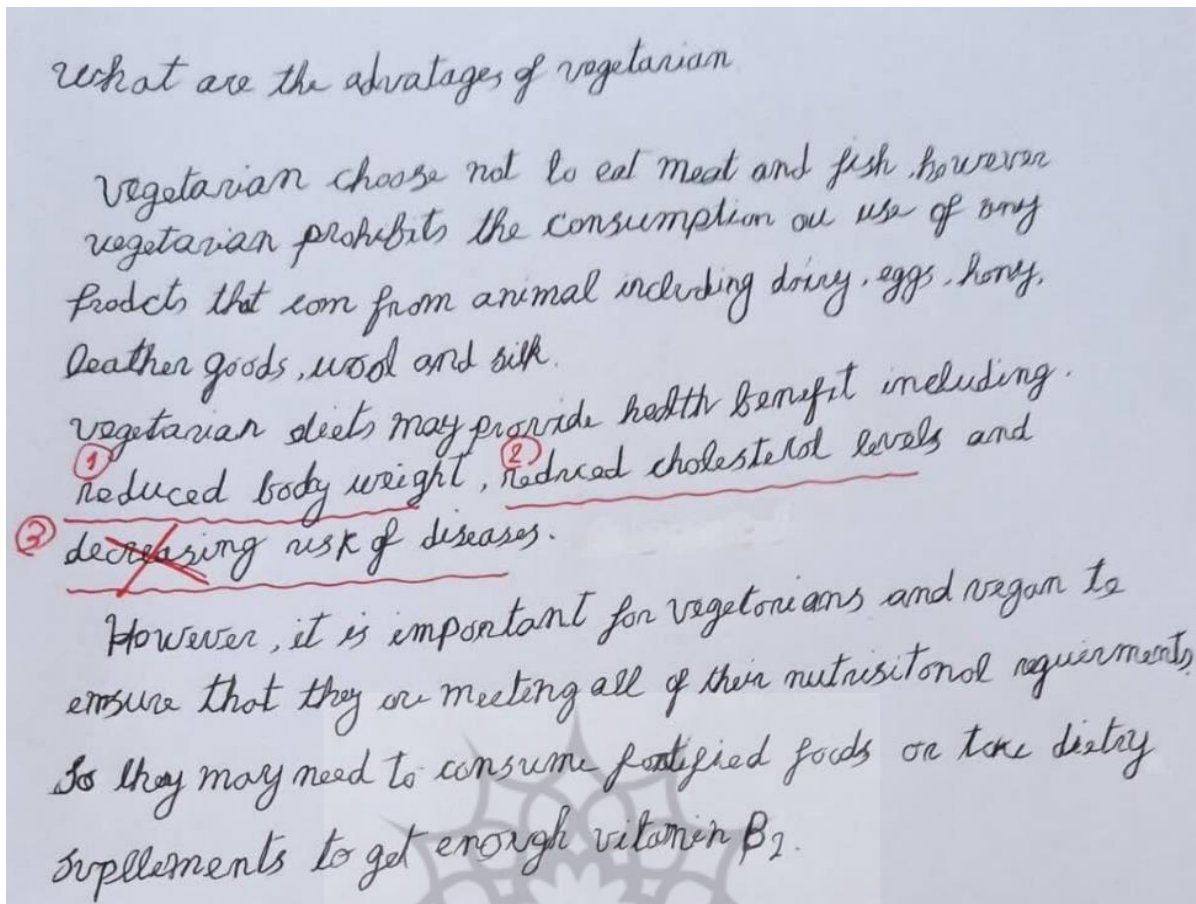 What are the advatages of vegetarian
Vegetarian choose not to eat meat and fish, however
vegetarian prohibits the consumption ou use of any
prodcts that com from animal including dairy, eggs, hony,
leather goods, wool and silk.
vegetarian diets may provide health benefit including.
① reduced body weight, ② reduced cholesterol levels and
③ decreasing risk of diseases.
However, it is important for vegetarians and vegan to
ensure that they are meeting all of their nutrisitonal requirments,
So they may need to consume fortified foods or take dietry
supllements to get enough vitamin B2.